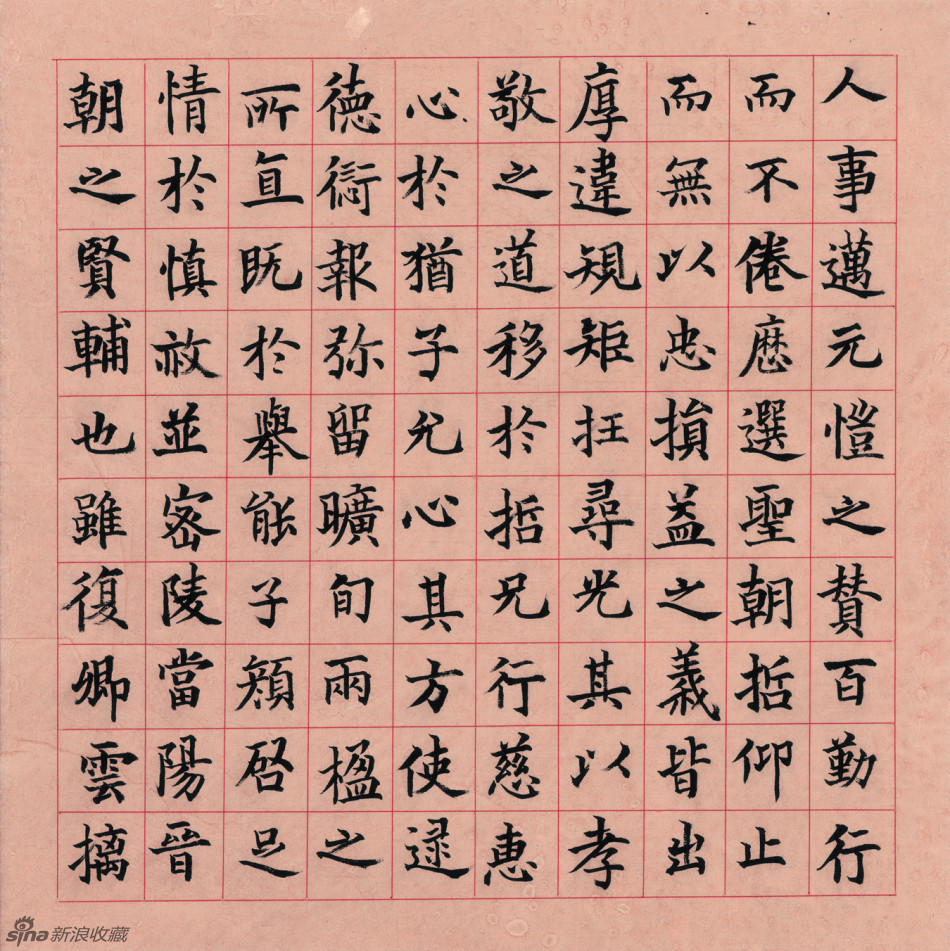 人事邁元愷之贊百勤行
而不倦歷選聖朝哲仰止
而無以忠損益之義皆出
厚違規矩抂尋光其以孝
敬之道移於哲兄行慈惠
心於猶子允心其方使逯
德銜報弥留曠旬兩楹之
所直既於舉能子顏启足
情於慎赦並密陵當陽晉
朝之賢輔也雖復卿雲摛
sina新浪收藏